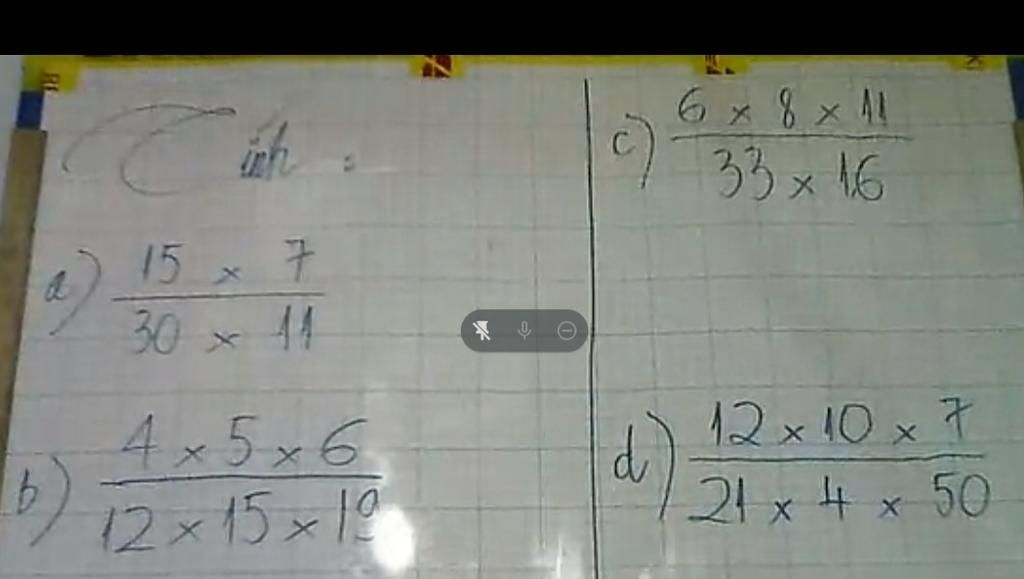 Tính :
a) 15 × 7
30 × 11
b) 4 × 5 × 6
12 × 15 × 19
c) 6 × 8 × 11
33 × 16
d) 12 × 10 × 7
21 × 4 × 50